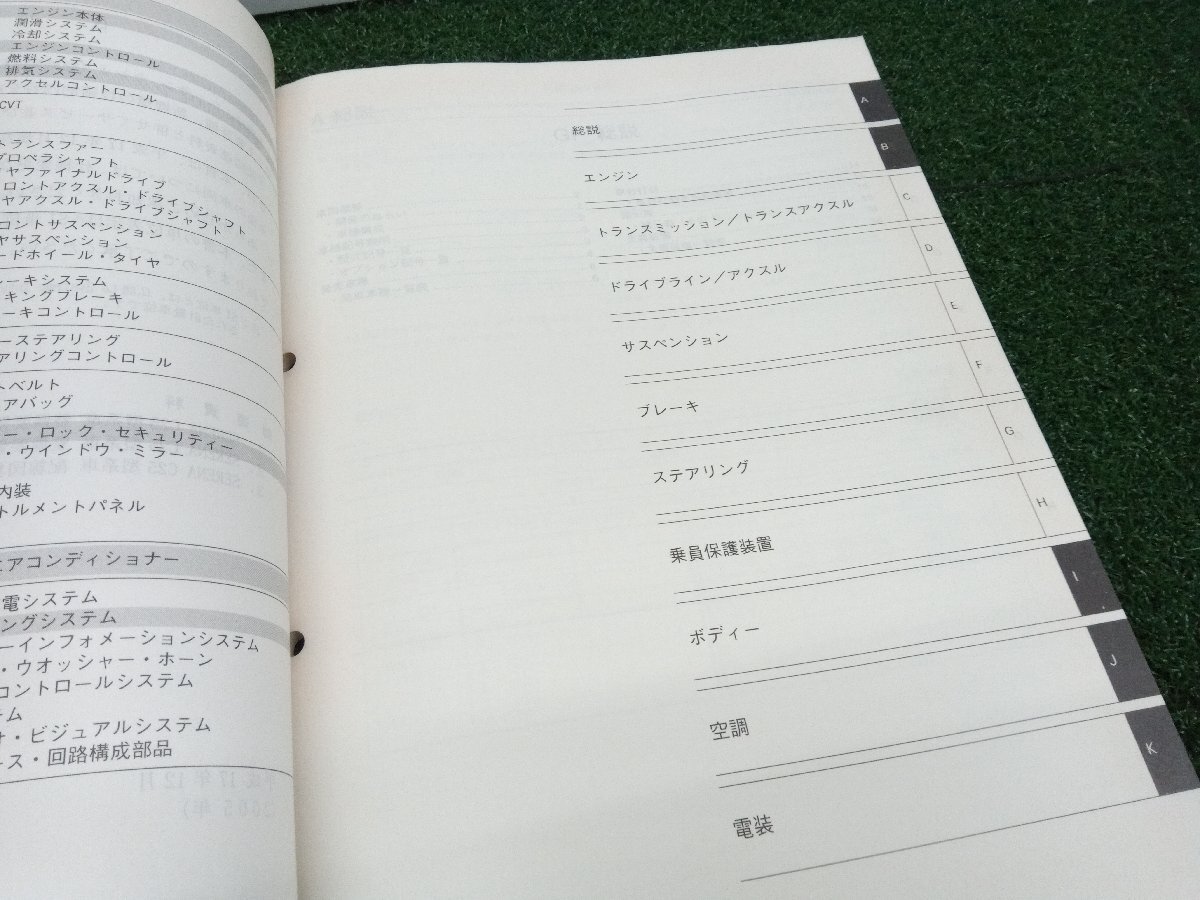 エンジン本体
潤滑システム
冷却システム
エンジンコントロール
燃料システム
排気システム
アクセルコントロール
CVT
トランスファー
プロペラシャフト
ヤファイナルドライブ
ロントアクスル・ドライブシャフト
ヤアクスル・ドライブシャフト
コントサスペンション
ヤサスペンション
ードホイール・タイヤ
レーキシステム
キングブレーキ
ーキコントロール
ーステアリング
アリングコントロール
トベルト
アバッグ
ー・ロック・セキュリティー
・ウインドウ・ミラー
内装
トルメントパネル
エアコンディショナー
電システム
ングシステム
ーインフォメーションシステム
・ウオッシャー・ホーン
コントロールシステム
テム
オ・ビジュアルシステム
ース・回路構成部品
総説
A
エンジン
B
トランスミッション/トランスアクスル
C
ドライブライン/アクスル
D
サスペンション
E
ブレーキ
F
ステアリング
G
乗員保護装置
H
ボディー
I
空調
J
電装
K